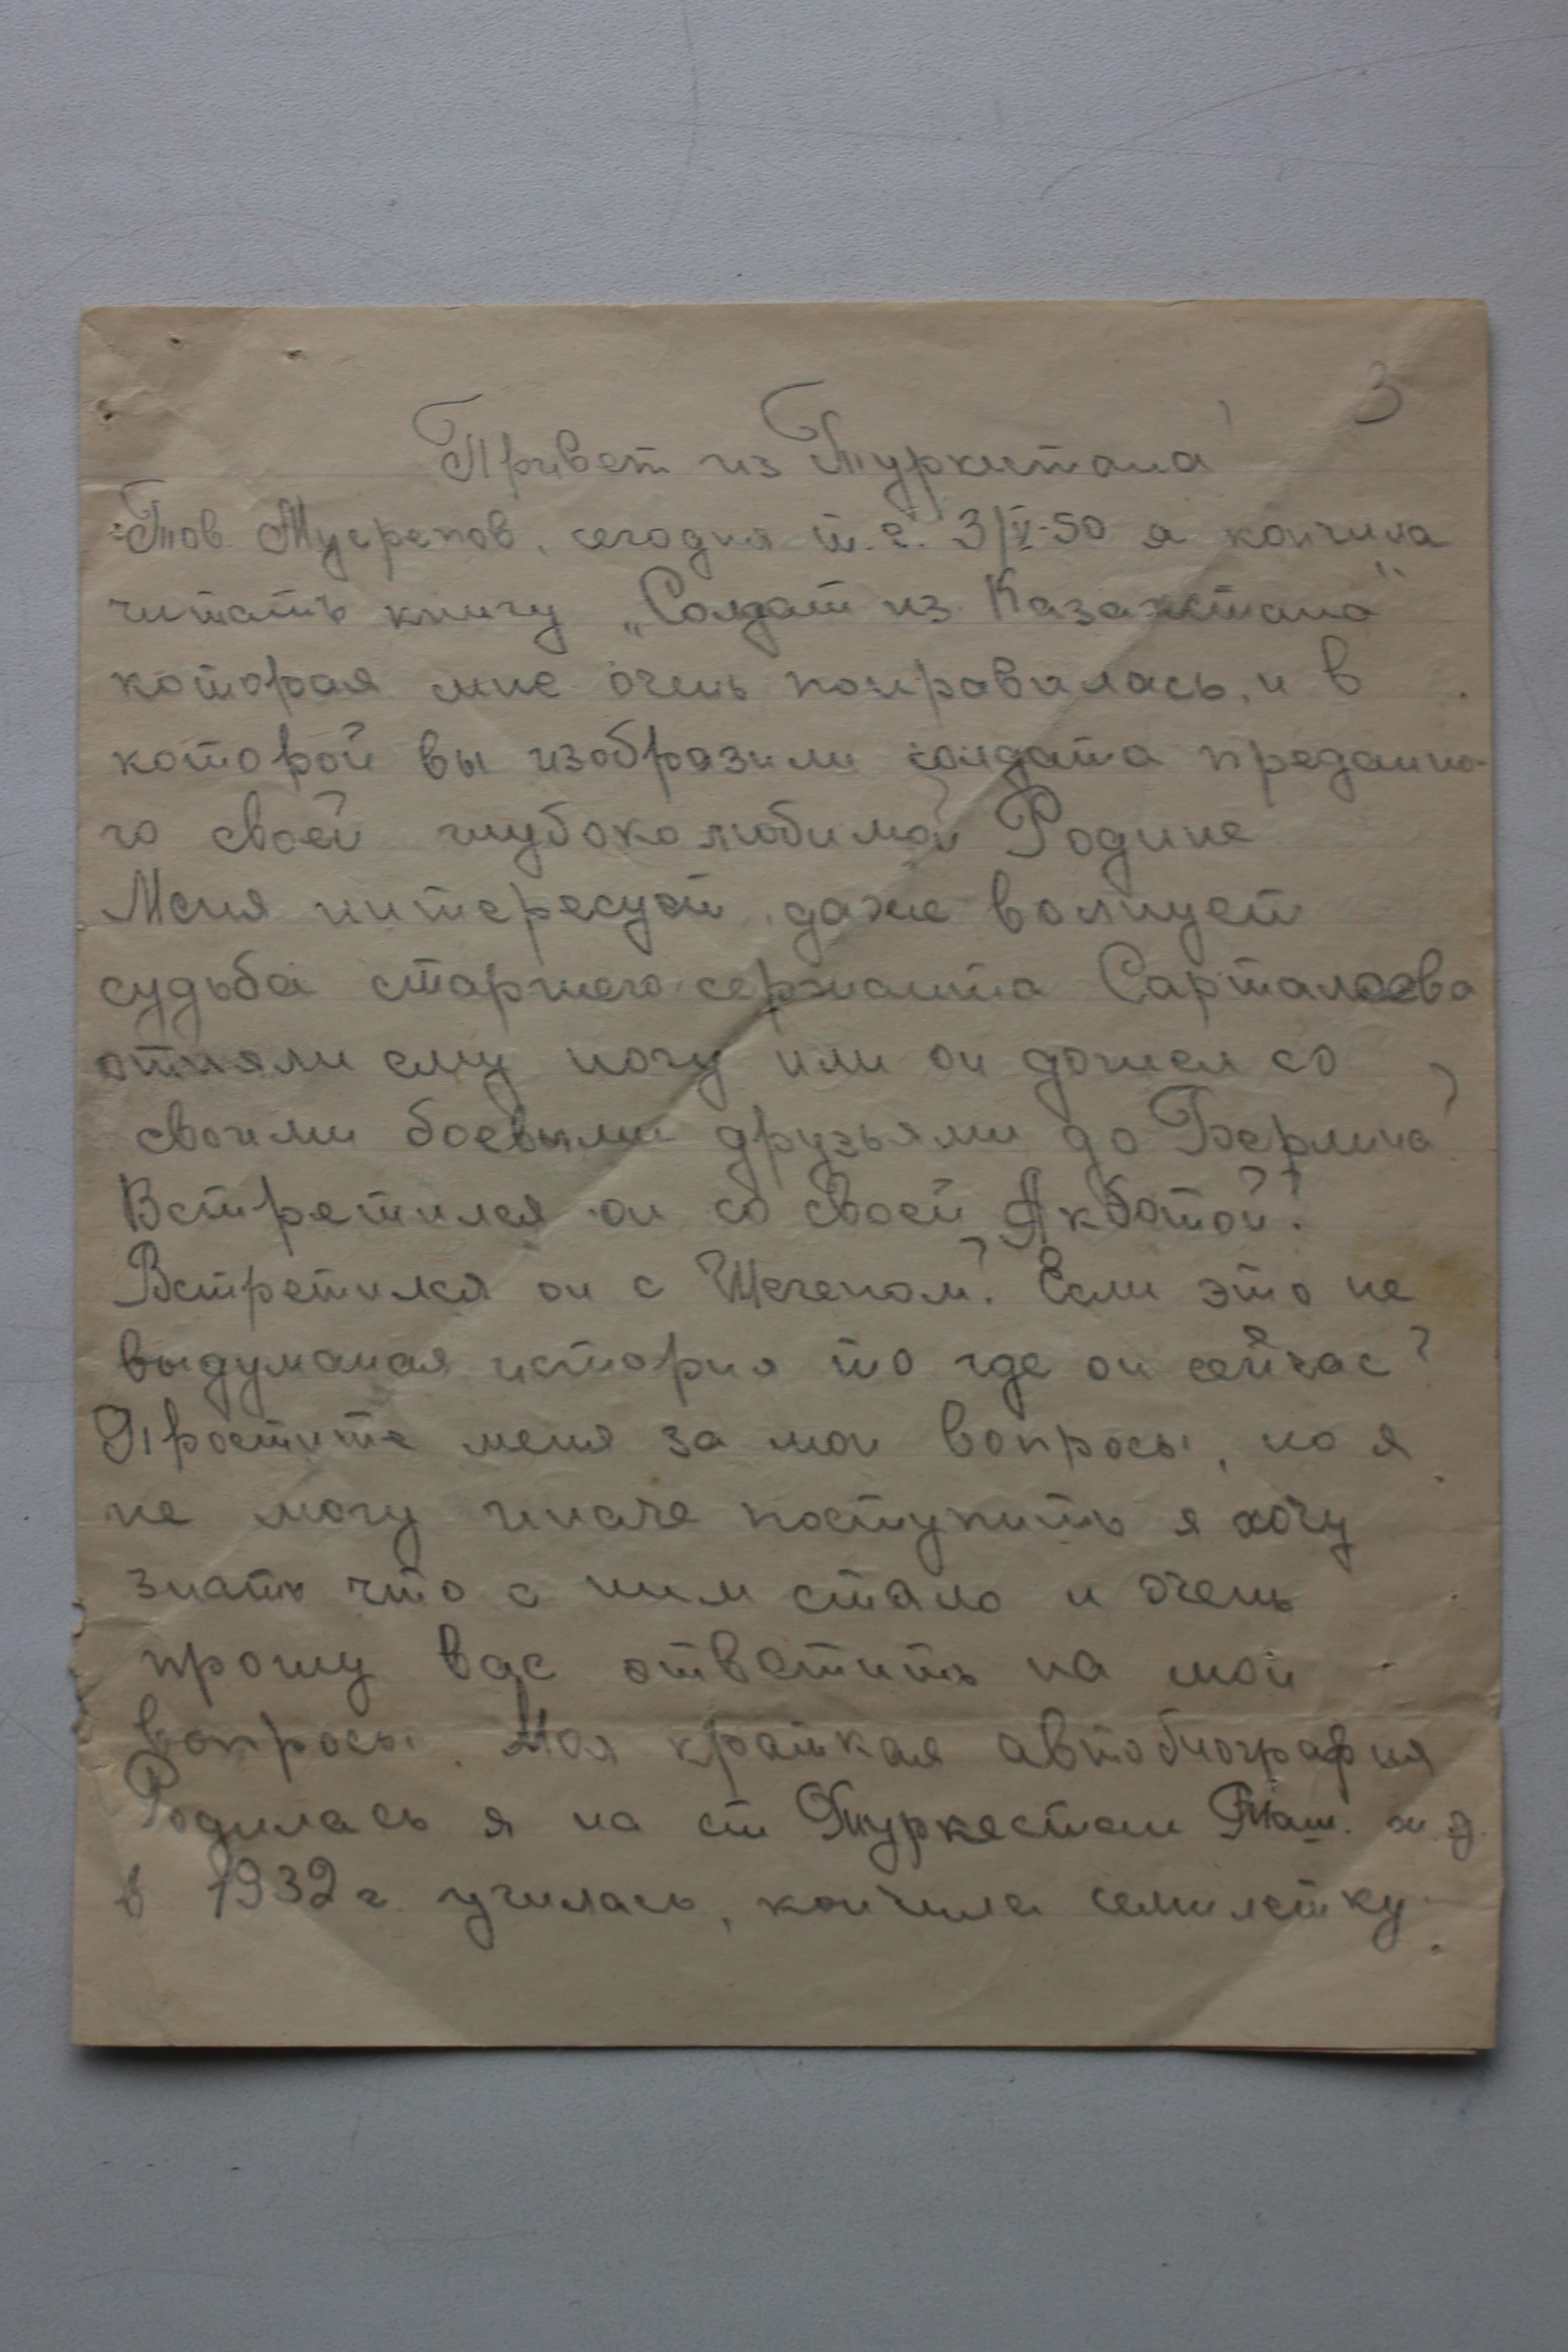 3
Привет из Туркестана!
Тов. Мусрепов, сегодня т.е. 3/V-50 я кончила
читать книгу „Солдат из Казахстана"
которая мне очень понравилась, и в
которой вы изобразили солдата преданно-
го своей глубоко любимой Родине
Меня интересует, даже волнует
судьба старшего сержанта Сарталеева
отняли ему ногу или он дошел со
своими боевыми друзьями до Берлина?
Встретился он со своей Акботой?
Встретился он с Шегеном? Если это не
выдуманая история то где он сейчас?
Простите меня за мои вопросы, но я
не могу иначе поступить я хочу
знать что с ним стало и очень
прошу вас ответить на мои
вопросы. Моя краткая автобиография
Родилась я на ст Туркестан Таш.
в 1932 г. училась, кончила семилетку.